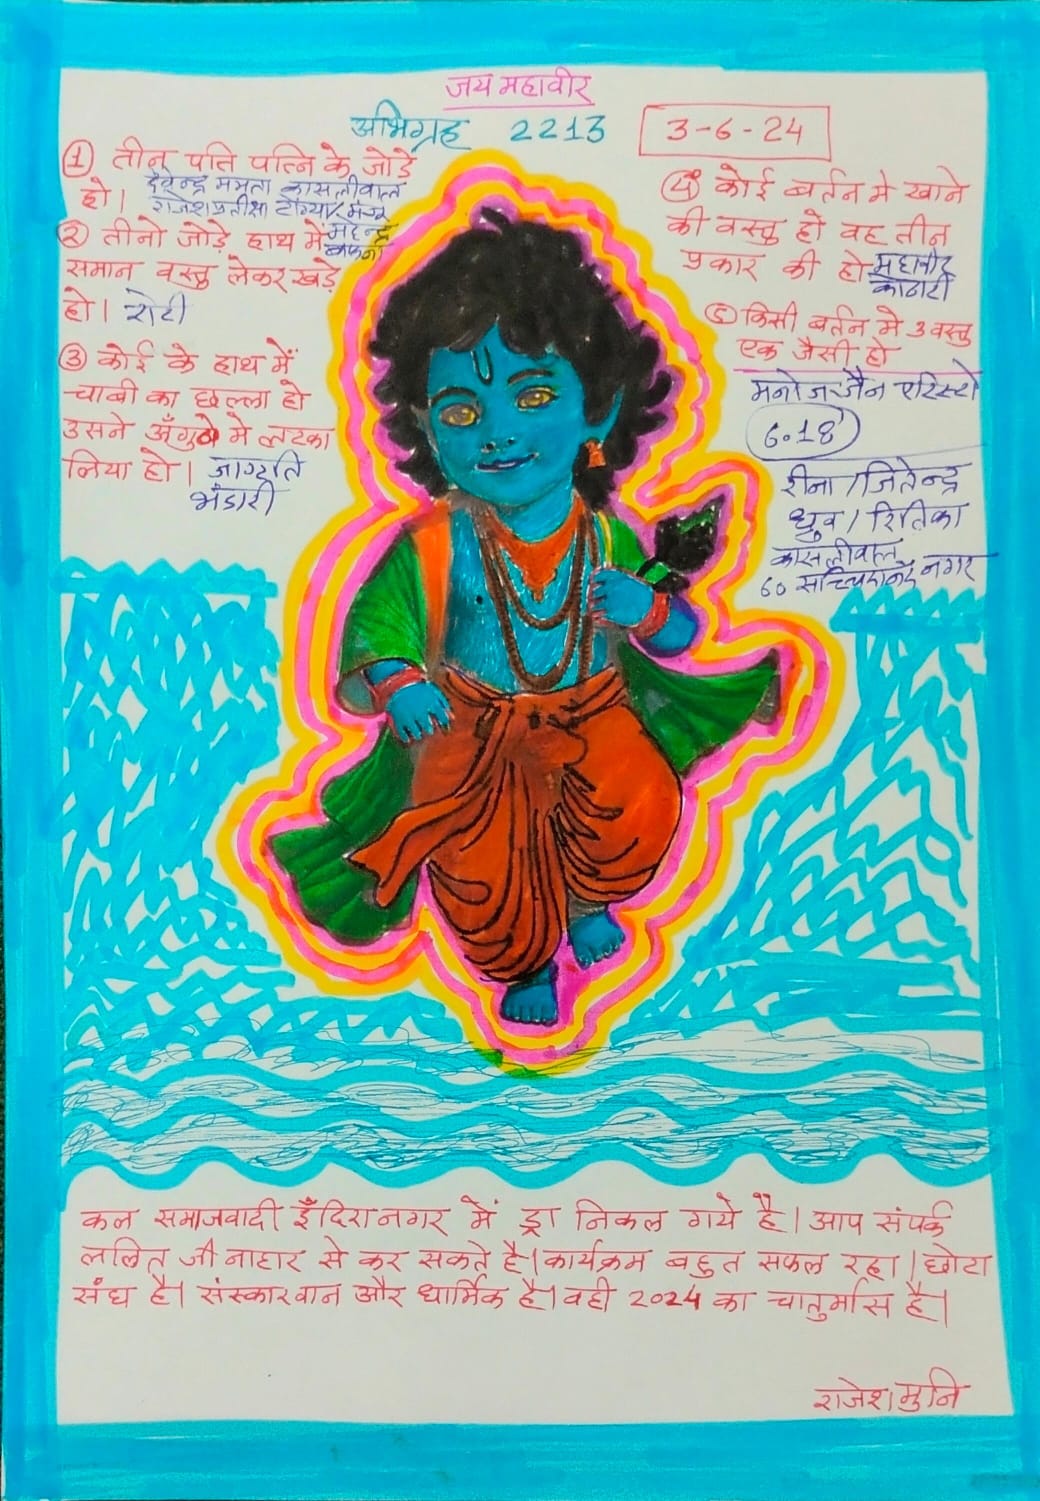 जय महावीर
अभिग्रह 2213
3-6-24
① तीन पति पत्नि के जोड़े
हो। देवेन्द्र ममता कासलीवाल
राजेश प्रतीक्षा टोंग्या/
② तीनो जोड़े हाथ में महेन्द्र
बाफना
समान वस्तु लेकर खड़े
हो। रोटी
③ कोई के हाथ में
चाबी का छल्ला हो
उसने अँगुठे मे लटका
लिया हो। जागृति
भंडारी
④ कोई बर्तन मे खाने
की वस्तु हो वह तीन
प्रकार की हो महावीर
कोठारी
⑤ किसी बर्तन मे 3 वस्तु
एक जैसी हो
मनोज जैन एरिस्टो
6.18
रीना/जितेन्द्र
ध्रुव/रितिका
कासलीवाल
60 सच्चिदानंद नगर
कल समाजवादी इँदिरा नगर में ड्रा निकल गये है। आप संपर्क
ललित जी नाहार से कर सकते है। कार्यक्रम बहुत सफल रहा। छोटा
संघ है। संस्कारवान और धार्मिक है। वही 2024 का चातुर्मास है।
राजेश मुनि